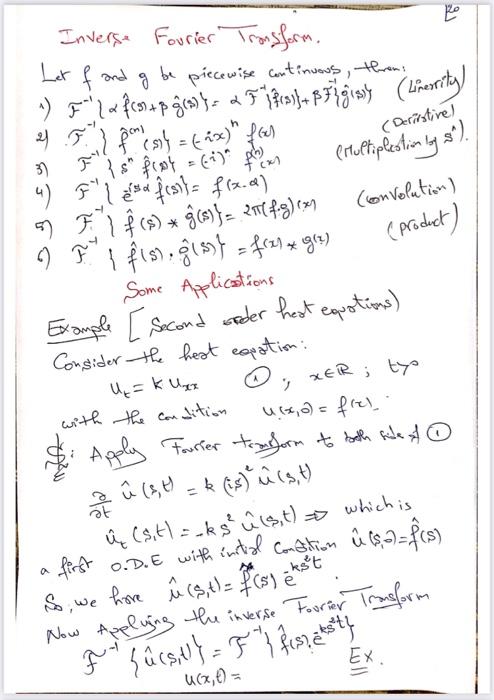 20
Inverse Fourier Transform.
Let f and g be piecewise continuous, then:
1) F⁻¹{α f̂(s)+β ĝ(s)} = α F⁻¹{f̂(s)}+β F⁻¹{ĝ(s)} (Linearity)
2) F⁻¹{f̂⁽ⁿ⁾(s)} = (-ix)ⁿ f(x) (Derivative)
3) F⁻¹{sⁿ f̂(s)} = (-i)ⁿ f⁽ⁿ⁾(x) (Multiplication by sⁿ)
4) F⁻¹{e^{isα} f̂(s)} = f(x-α)
5) F⁻¹{f̂(s) * ĝ(s)} = 2π(f.g)(x) (convolution)
6) F⁻¹{f̂(s) . ĝ(s)} = f(x) * g(x) (product)
Some Applications
Example [Second order heat equations)
Consider the heat equation:
u_t = k u_xx ①, x∈ℝ ; t>0
with the condition u(x,0) = f(x).
Apply Fourier transform to both side of ①
∂/∂t û(s,t) = k (is)² û(s,t)
û_t(s,t) = -ks² û(s,t) ⇒ which is
a first O.D.E with initial condition û(s,0)=f̂(s)
So, we have û(s,t) = f̂(s) e^{-ks²t}
Now Applying the inverse Fourier Transform
F⁻¹{û(s,t)} = F⁻¹{f̂(s). e^{-ks²t}}
u(x,t) = Ex.